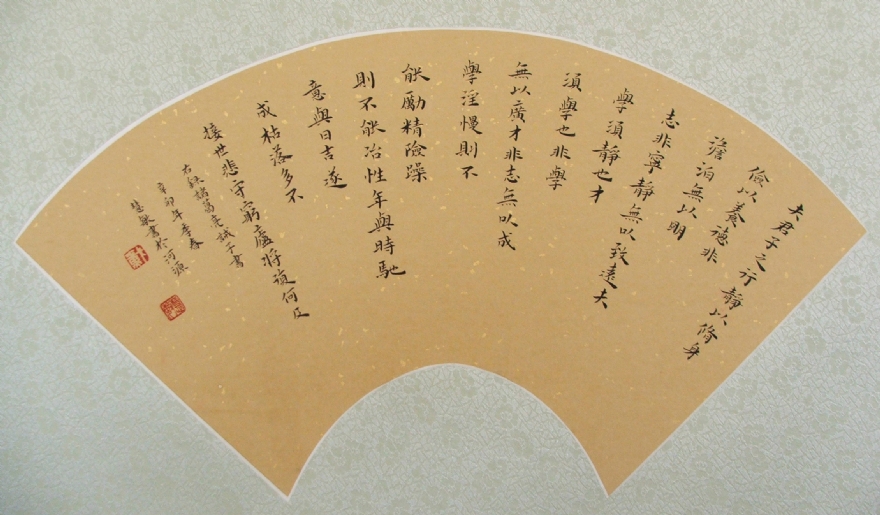 夫君子之行靜以脩身
儉以養德非
澹泊無以明
志非寧靜無以致遠夫
學須靜也才
須學也非學
無以廣才非志無以成
學淫慢則不
能勵精險躁
則不能冶性年與時馳
意與日去遂
成枯落多不
接世悲守窮廬將復何及
右録諸葛亮誡子書
辛卯年季春
書於河源